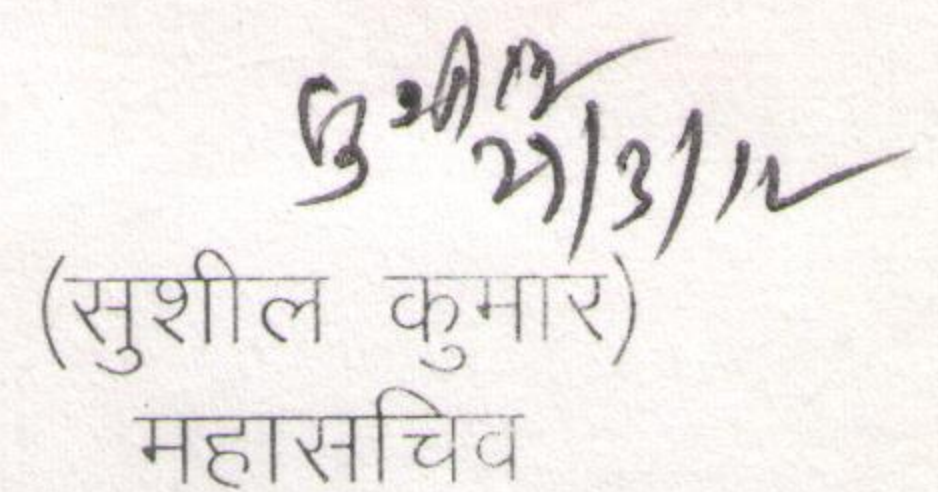 सुशील
29/3/12
(सुशील कुमार)
महासचिव